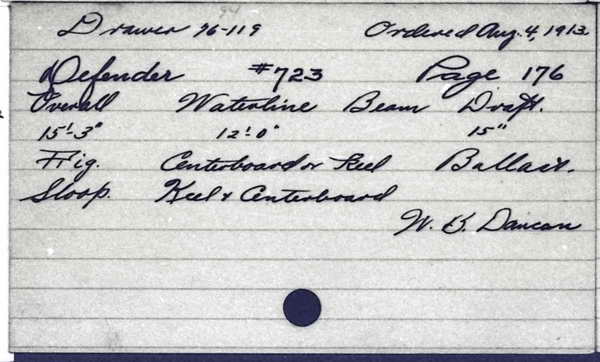 94
Drawer 76-119 Ordered Aug. 4, 1913
Defender #723 Page 176
Overall Waterline Beam Draft.
15'-3" 12'-0" 15"
Rig. Centerboard or Keel Ballast.
Sloop. Keel & Centerboard
W. B. Duncan